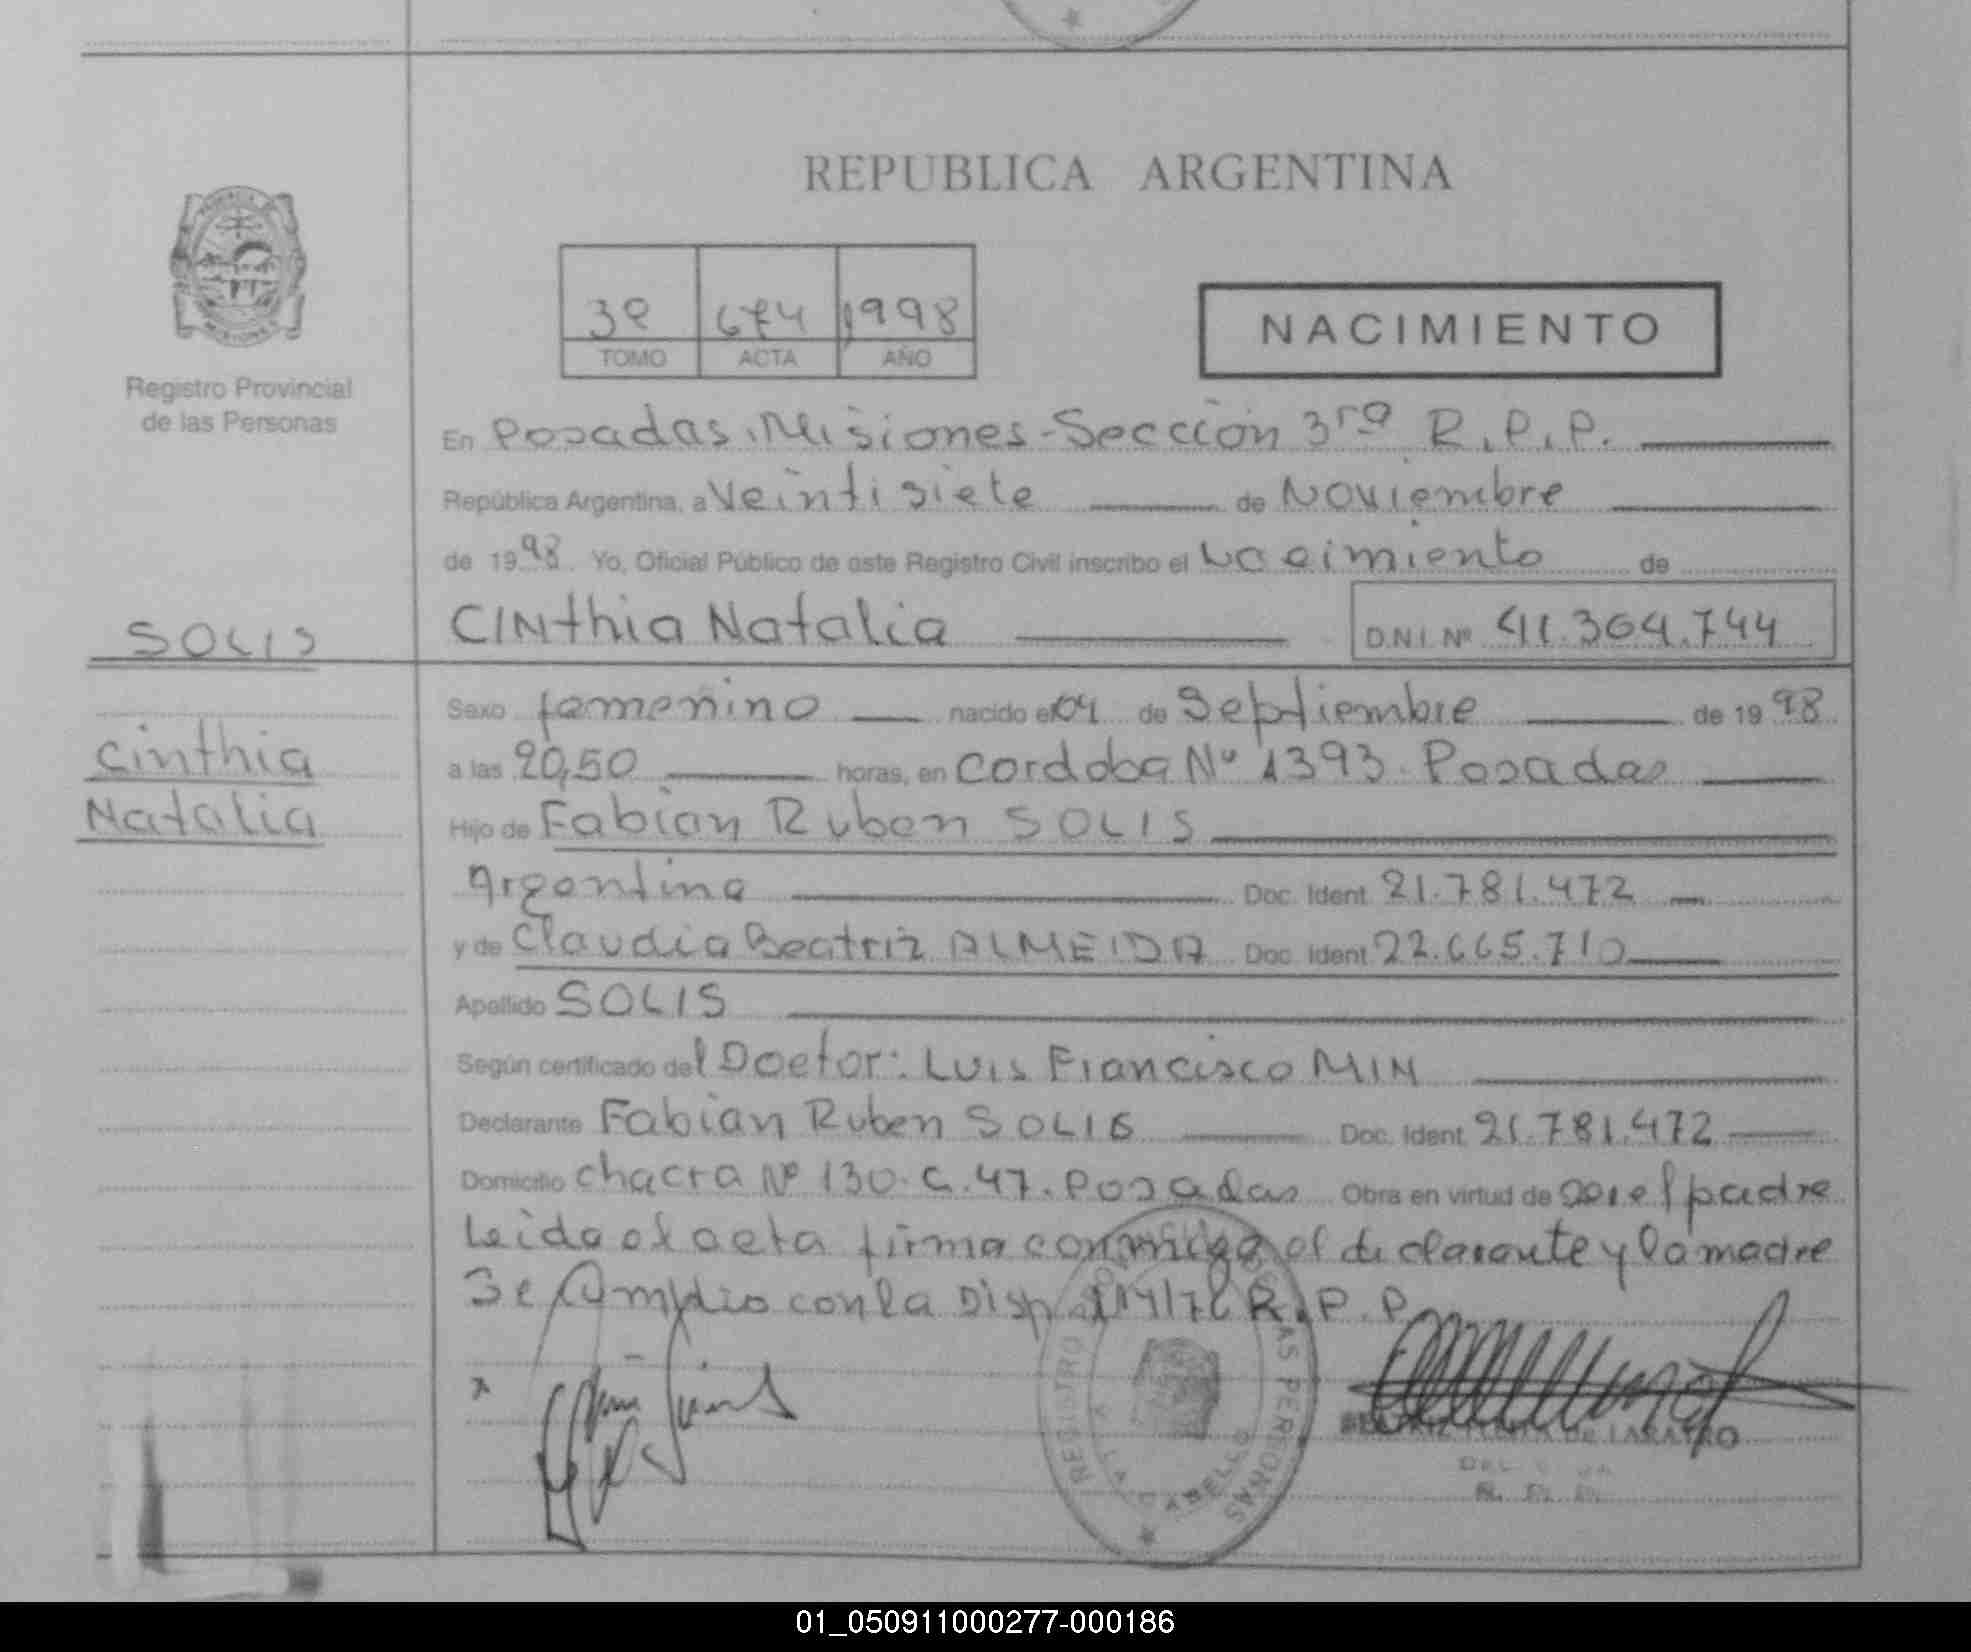 REPUBLICA ARGENTINA
3º 674 1998
TOMO ACTA AÑO
NACIMIENTO
Registro Provincial
de las Personas
En Posadas, Misiones - Sección 3ra R.P.P.
República Argentina, a Veintisiete de Noviembre
de 1998. Yo, Oficial Público de este Registro Civil inscribo el nacimiento de
SOLIS
Cinthia Natalia D.N.I. Nº 41.364.744
Cinthia
Natalia
Sexo femenino nacido el 04 de Septiembre de 1998
a las 20,50 horas, en Cordoba Nº 1393 - Posadas
Hijo de Fabian Ruben SOLIS
Argentina Doc. Ident. 21.781.472
y de Claudia Beatriz ALMEIDA Doc. Ident. 22.665.710
Apellido SOLIS
Según certificado del Doctor: Luis Francisco MIN
Declarante Fabian Ruben SOLIS Doc. Ident. 21.781.472
Domicilio chacra Nº 130. C. 47. Posadas Obra en virtud de ser el padre
Leida el acta firma conmigo el declarante y la madre
Se cumplio con la Disp. R.P.P.
REGISTRO PERSONAS
BEATRIZ DE
R. P. P.
01_050911000277-000186